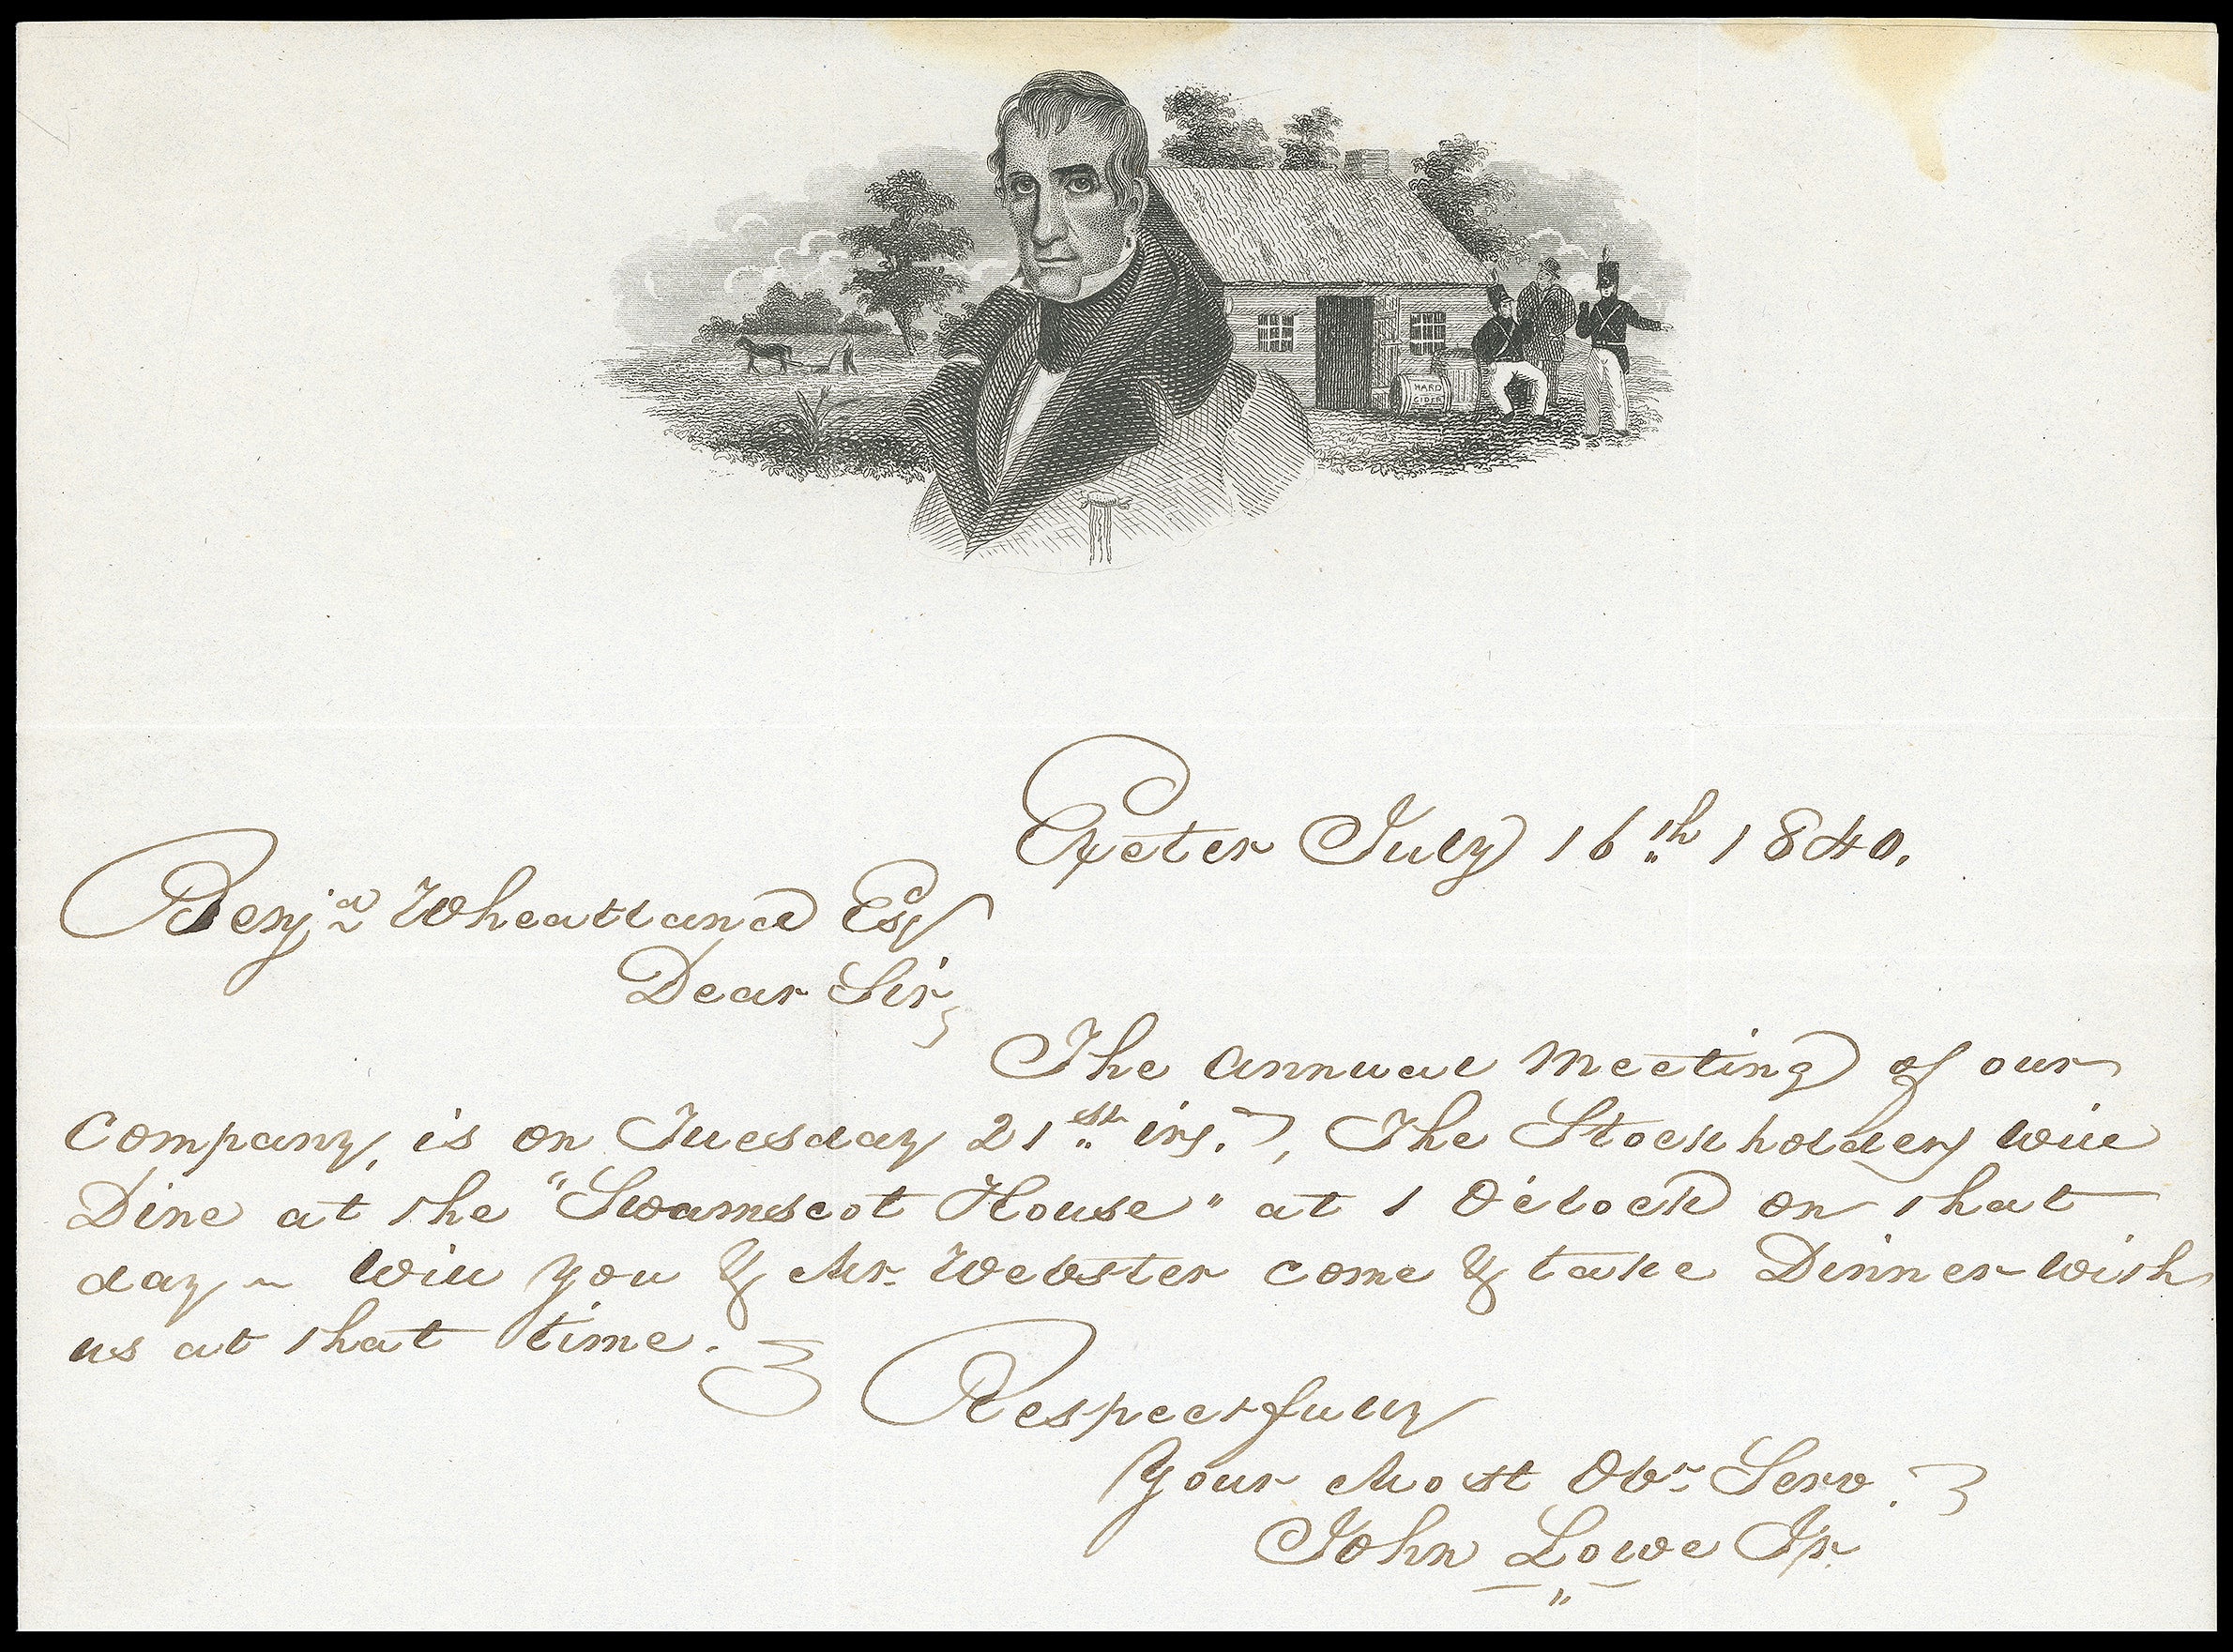 HARD
CIDER
Exeter July 16th 1840.
Benja Wheatland Esq
Dear Sir,
The annual meeting of our
Company, is on Tuesday 21st ins. , The Stockholders will
Dine at the "Swamscot House" at 1 O'clock on that
day ~ will you & Mr. Webster come & take Dinner with
us at that time.
Respectfully
Your Most Obt Serv.
John Lowe Jr.